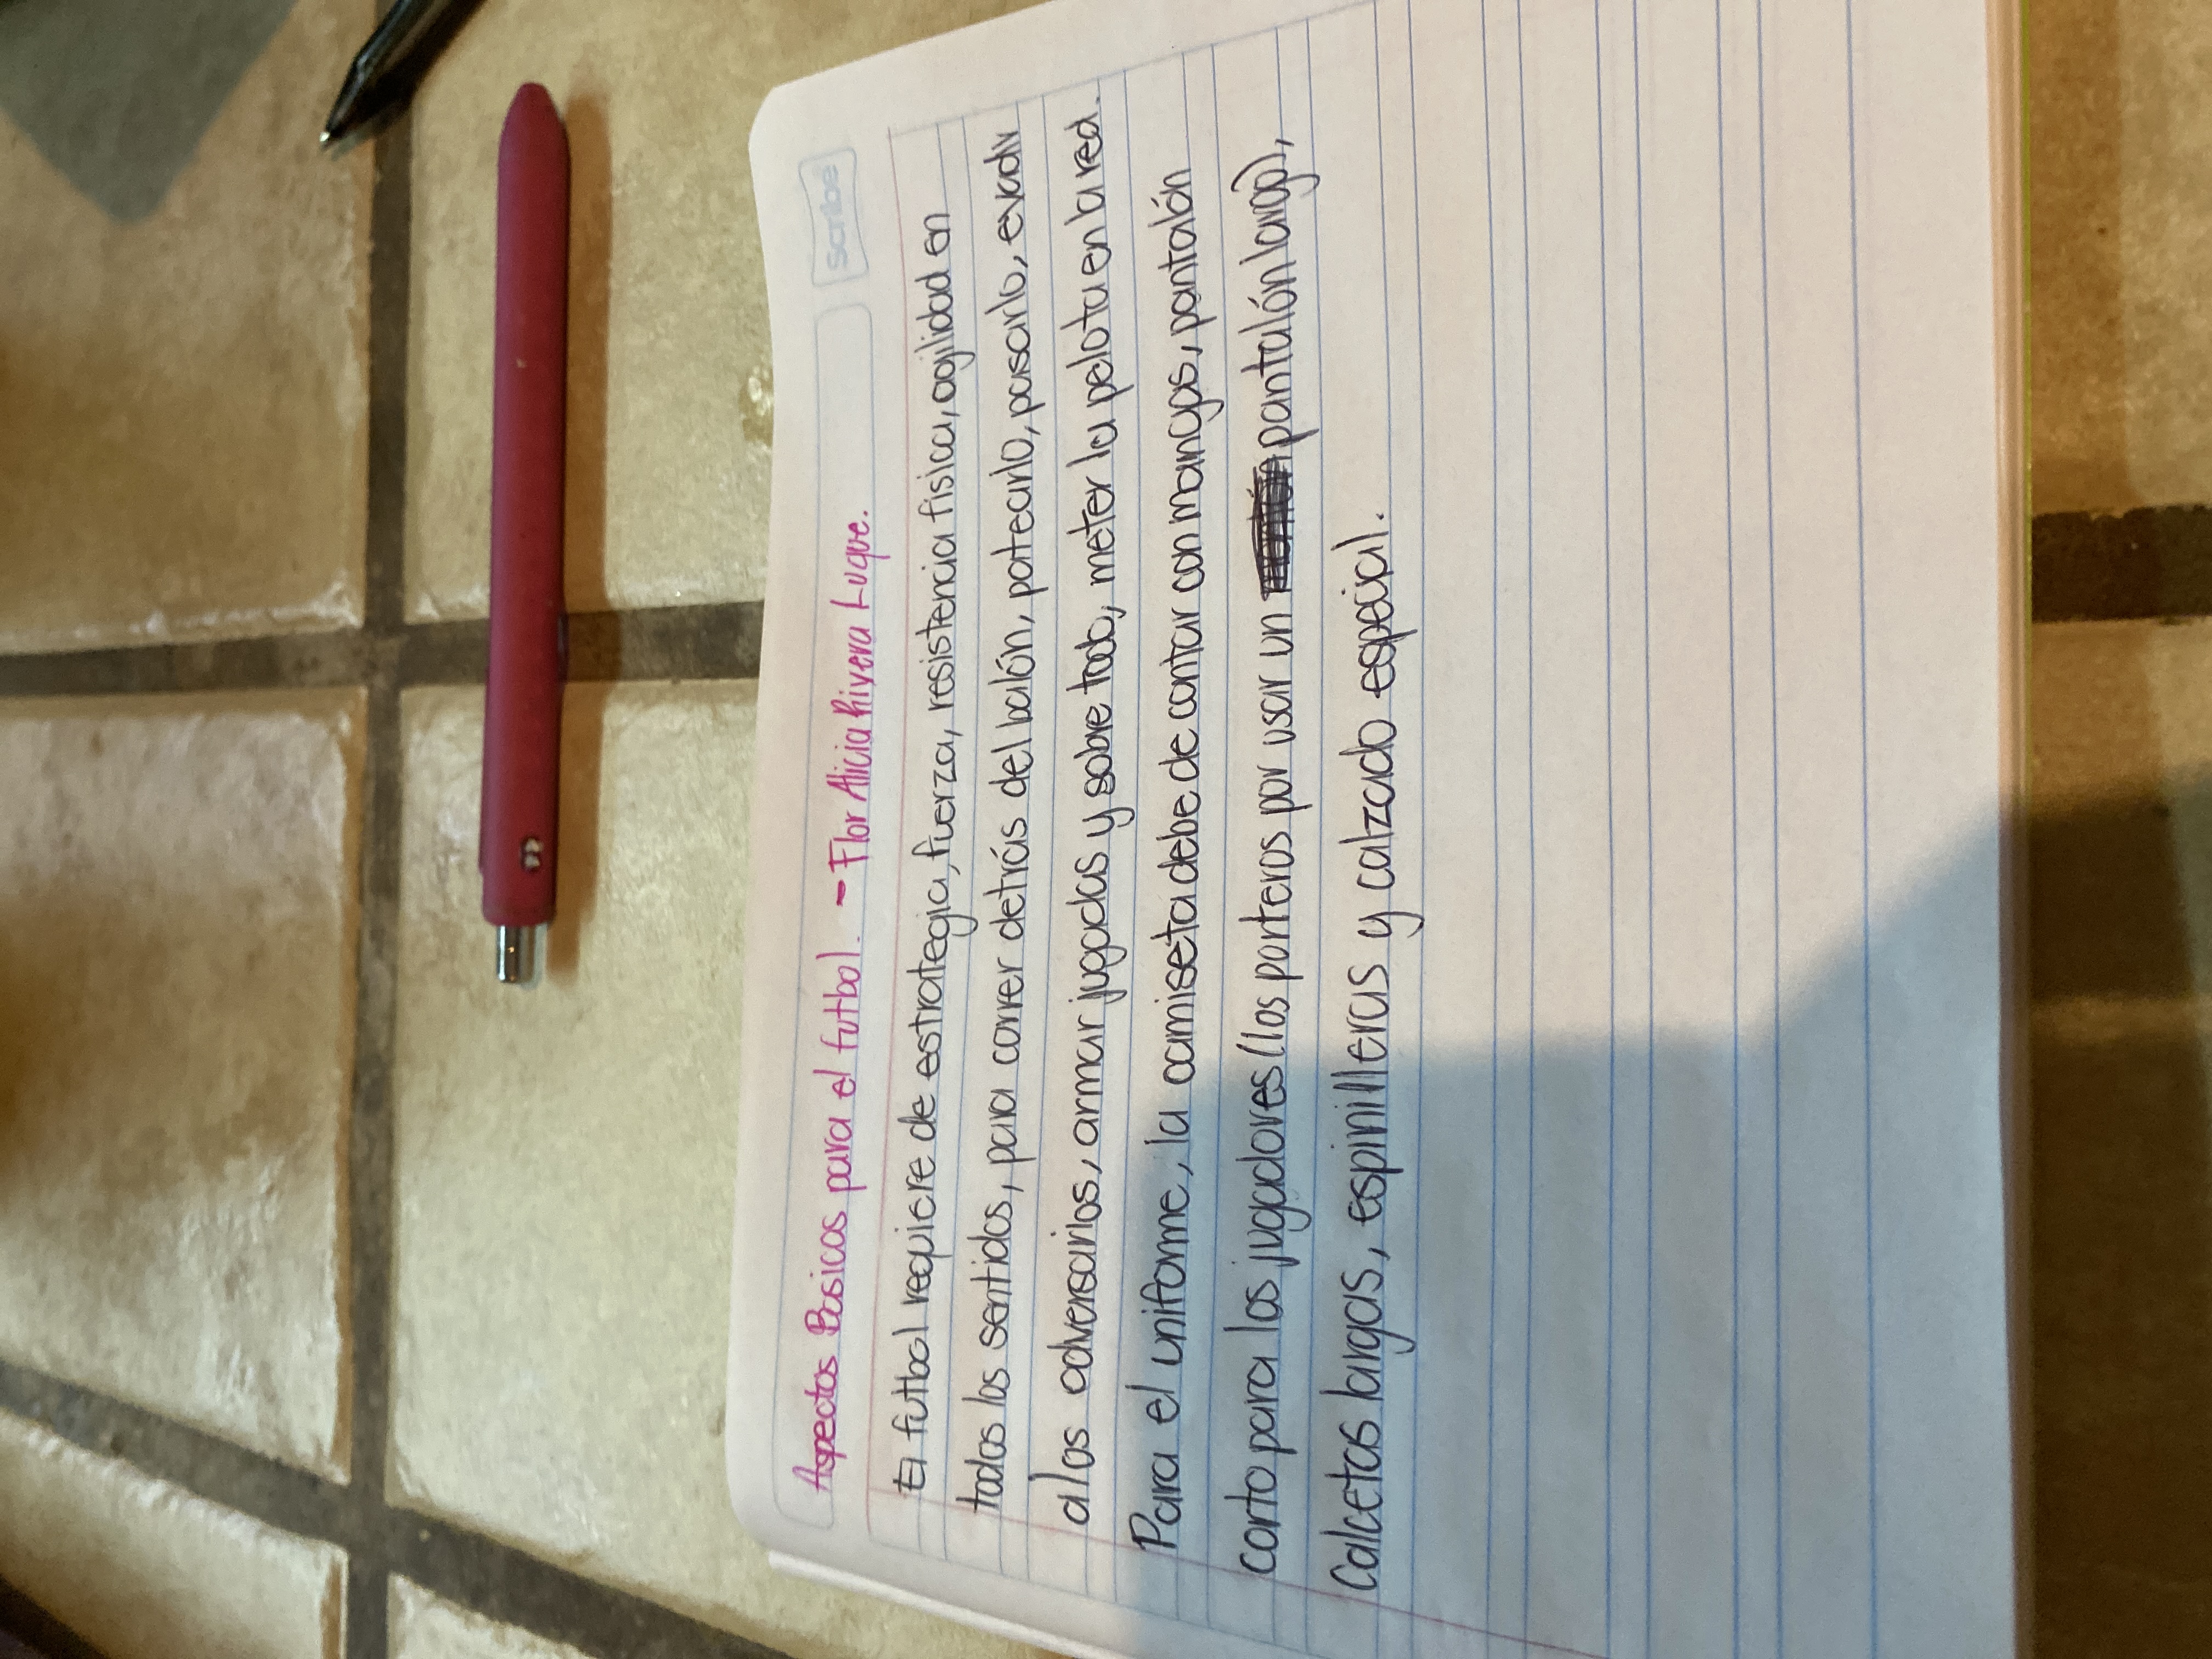 scribe
Aspectos Basicos para el futbol. - Flor Alicia Rivera Luque.
El futbol requiere de estrategia, fuerza, resistencia fisica, agilidad en
todos los sentidos, para correr detrás del balón, patearlo, pasarlo, evadir
a los adversarios, armar jugadas y sobre todo, meter la pelota en la red.
Para el uniforme, la camiseta debe de contar con mangas, pantalón
corto para los jugadores (los porteros por usar un pantalón largo),
Calcetas largas, espinilleras y calzado especial.